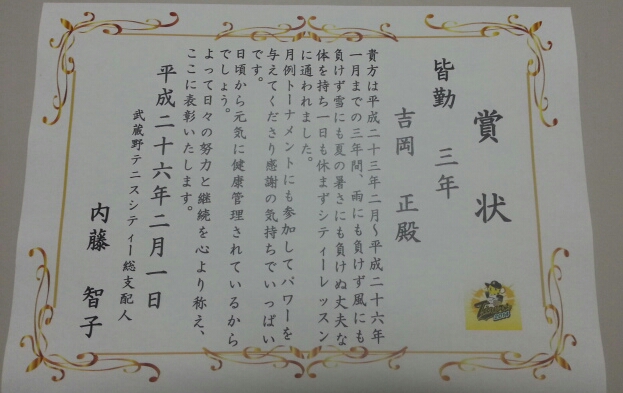 賞状
皆勤 三年
吉岡 正殿
貴方は平成二十三年二月～平成二十六年
一月までの三年間、雨にも負けず風にも
負けず雪にも夏の暑さにも負けぬ丈夫な
体を持ち一日も休まずシティーレッスン
に通われました。
月例トーナメントにも参加してパワーを
与えてくださり感謝の気持ちでいっぱい
です。
日頃から元気に健康管理されているから
でしょう。
よって日々の努力と継続を心より称え、
ここに表彰いたします。
平成二十六年二月一日
武蔵野テニスシティー総支配人
内藤 智子